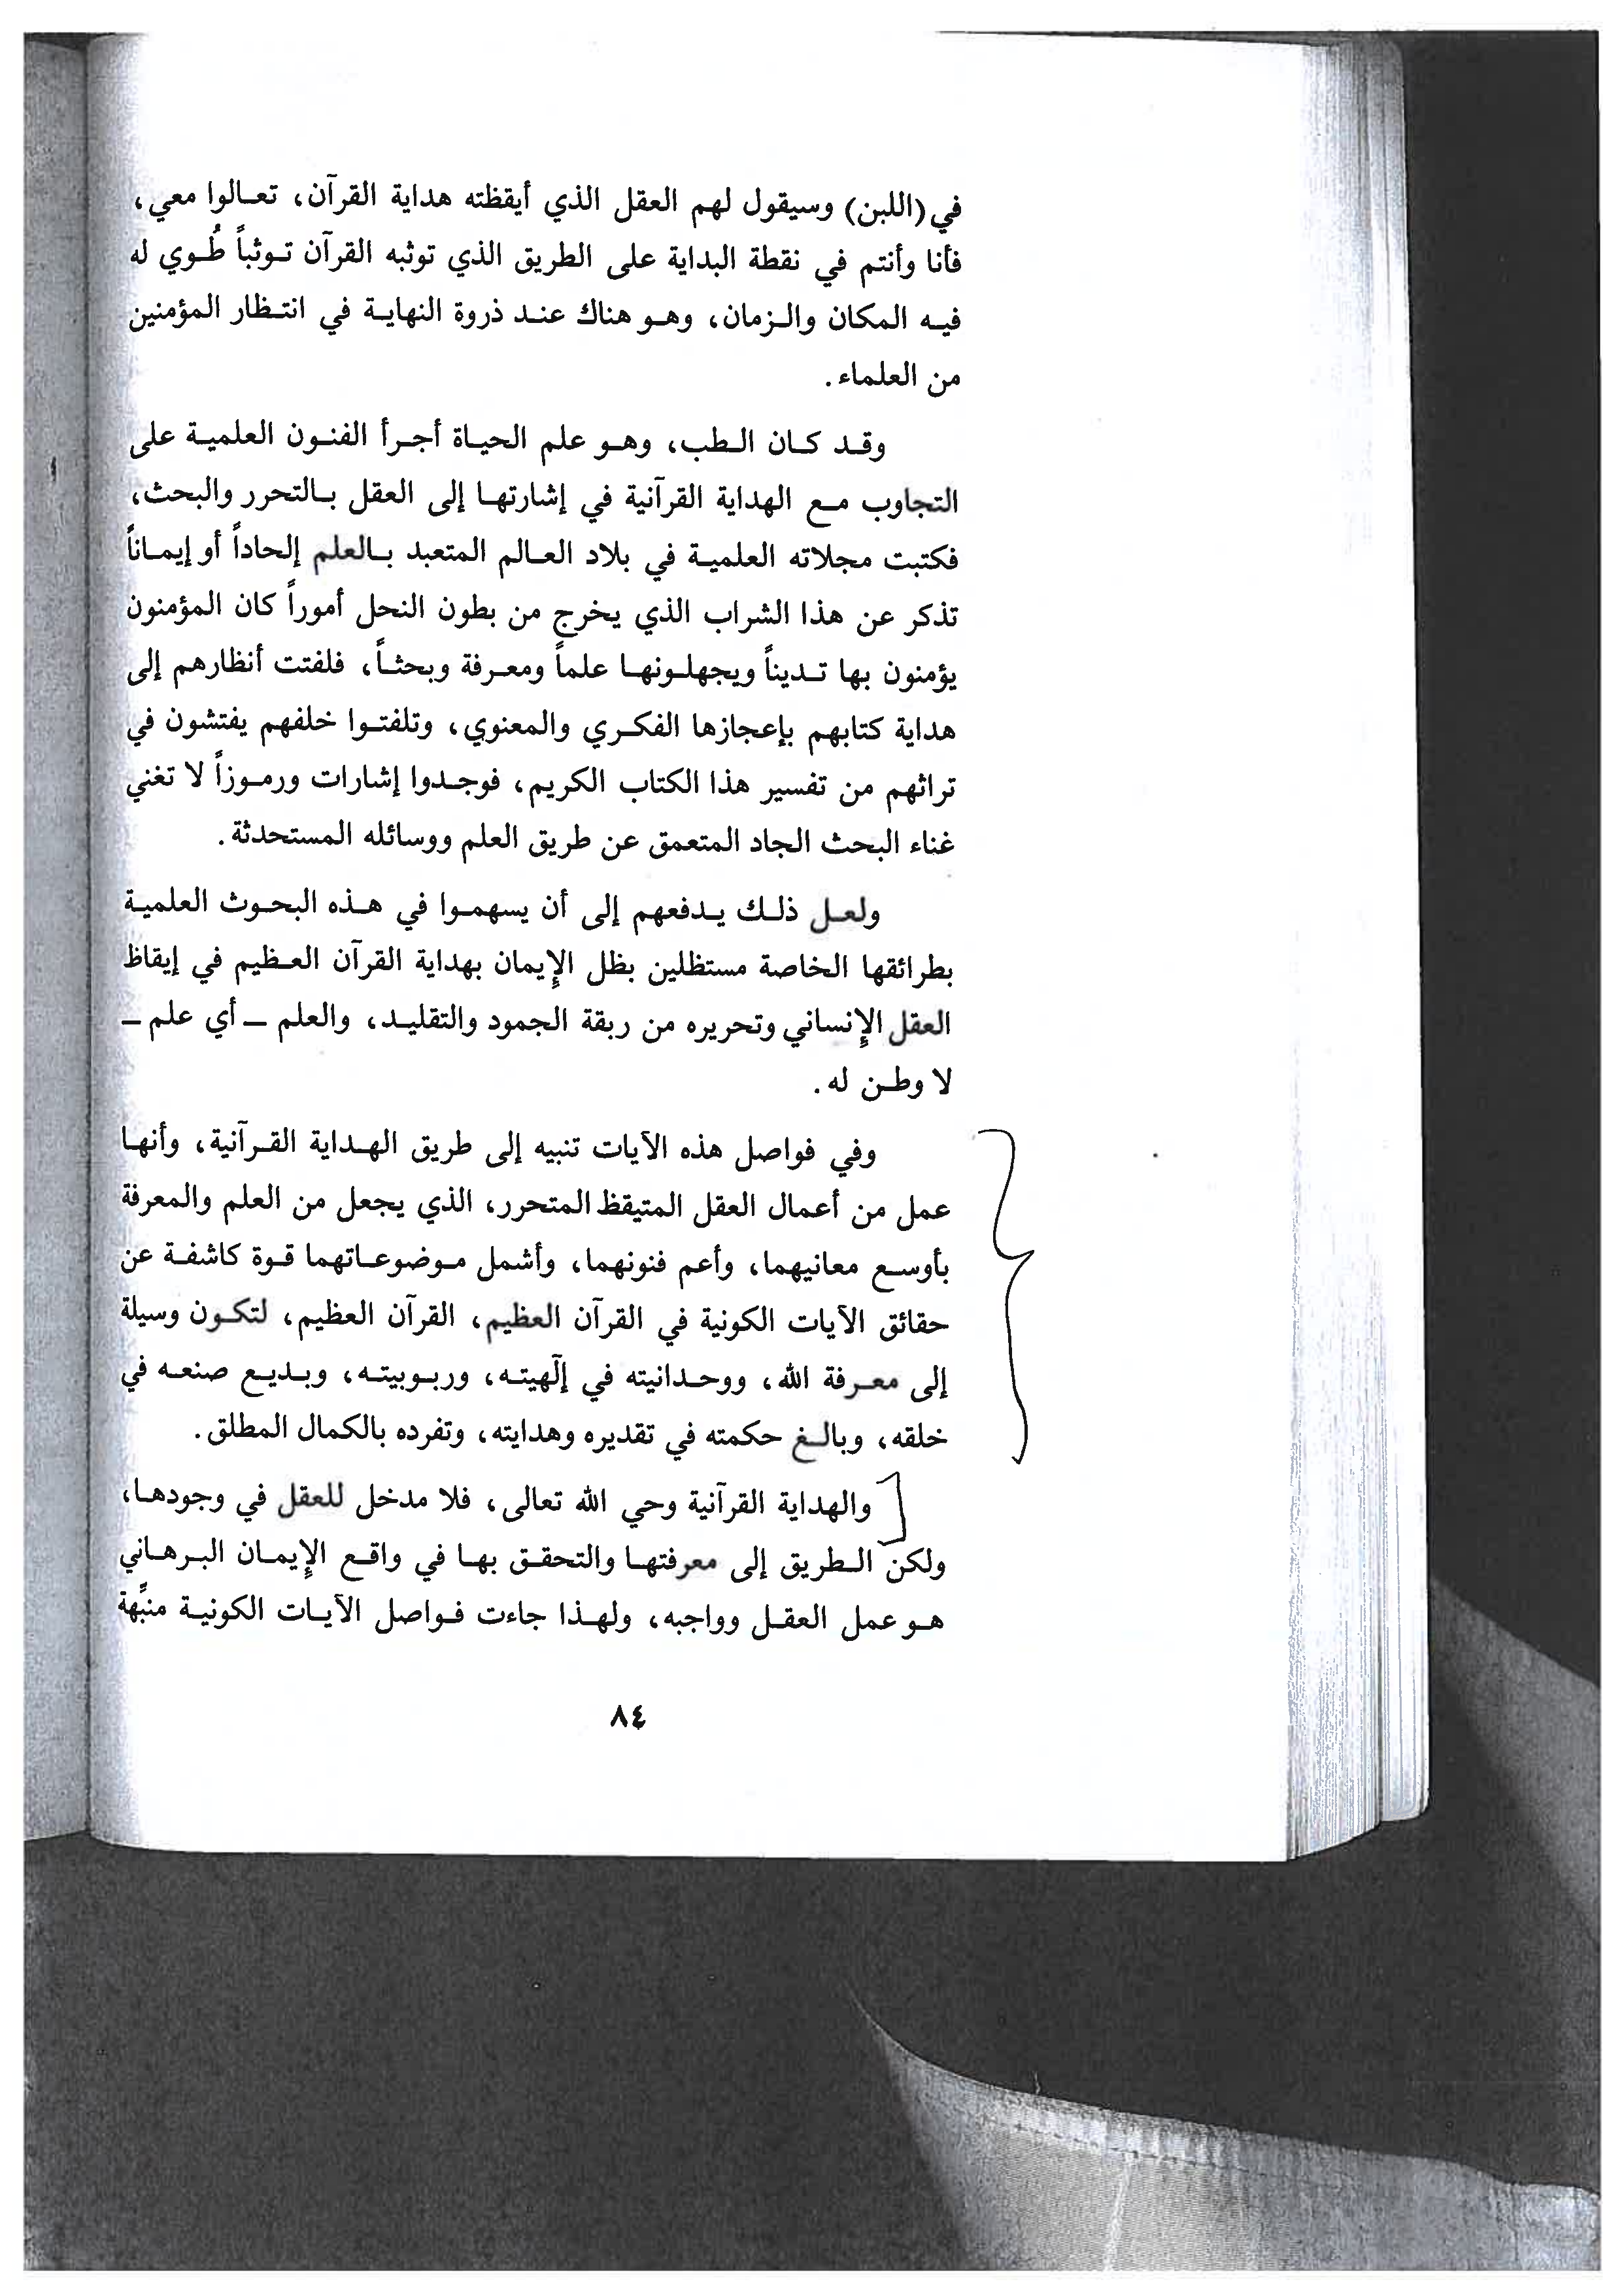 في (اللبن) وسيقول لهم العقل الذي أيقظته هداية القرآن، تعالوا معي،
فأنا وأنتم في نقطة البداية على الطريق الذي توثبه القرآن توثباً طُوي له
فيه المكان والزمان، وهو هناك عند ذروة النهاية في انتظار المؤمنين
من العلماء.
وقد كان الطب، وهو علم الحياة أجرأ الفنون العلمية على
التجاوب مع الهداية القرآنية في إشارتها إلى العقل بالتحرر والبحث،
فكتبت مجلاته العلمية في بلاد العالم المتعبد بالعلم إلحاداً أو إيماناً
تذكر عن هذا الشراب الذي يخرج من بطون النحل أموراً كان المؤمنون
يؤمنون بها تديناً ويجهلونها علماً ومعرفة وبحثاً، فلفتت أنظارهم إلى
هداية كتابهم بإعجازها الفكري والمعنوي، وتلفتوا خلفهم يفتشون في
تراثهم من تفسير هذا الكتاب الكريم، فوجدوا إشارات ورموزاً لا تغني
غناء البحث الجاد المتعمق عن طريق العلم ووسائله المستحدثة.
ولعل ذلك يدفعهم إلى أن يسهموا في هذه البحوث العلمية
بطرائقها الخاصة مستظلين بظل الإيمان بهداية القرآن العظيم في إيقاظ
العقل الإنساني وتحريره من ربقة الجمود والتقليد، والعلم ــ أي علم ــ
لا وطن له.
وفي فواصل هذه الآيات تنبيه إلى طريق الهداية القرآنية، وأنها
عمل من أعمال العقل المتيقظ المتحرر، الذي يجعل من العلم والمعرفة
بأوسع معانيهما، وأعم فنونهما، وأشمل موضوعاتهما قوة كاشفة عن
حقائق الآيات الكونية في القرآن العظيم، القرآن العظيم، لتكون وسيلة
إلى معرفة الله، ووحدانيته في إلٓهيته، وربوبيته، وبديع صنعه في
خلقه، وبالغ حكمته في تقديره وهدايته، وتفرده بالكمال المطلق.
والهداية القرآنية وحي الله تعالى، فلا مدخل للعقل في وجودها،
ولكن الطريق إلى معرفتها والتحقق بها في واقع الإيمان البرهاني
هو عمل العقل وواجبه، ولهذا جاءت فواصل الآيات الكونية منبِّهة
٨٤